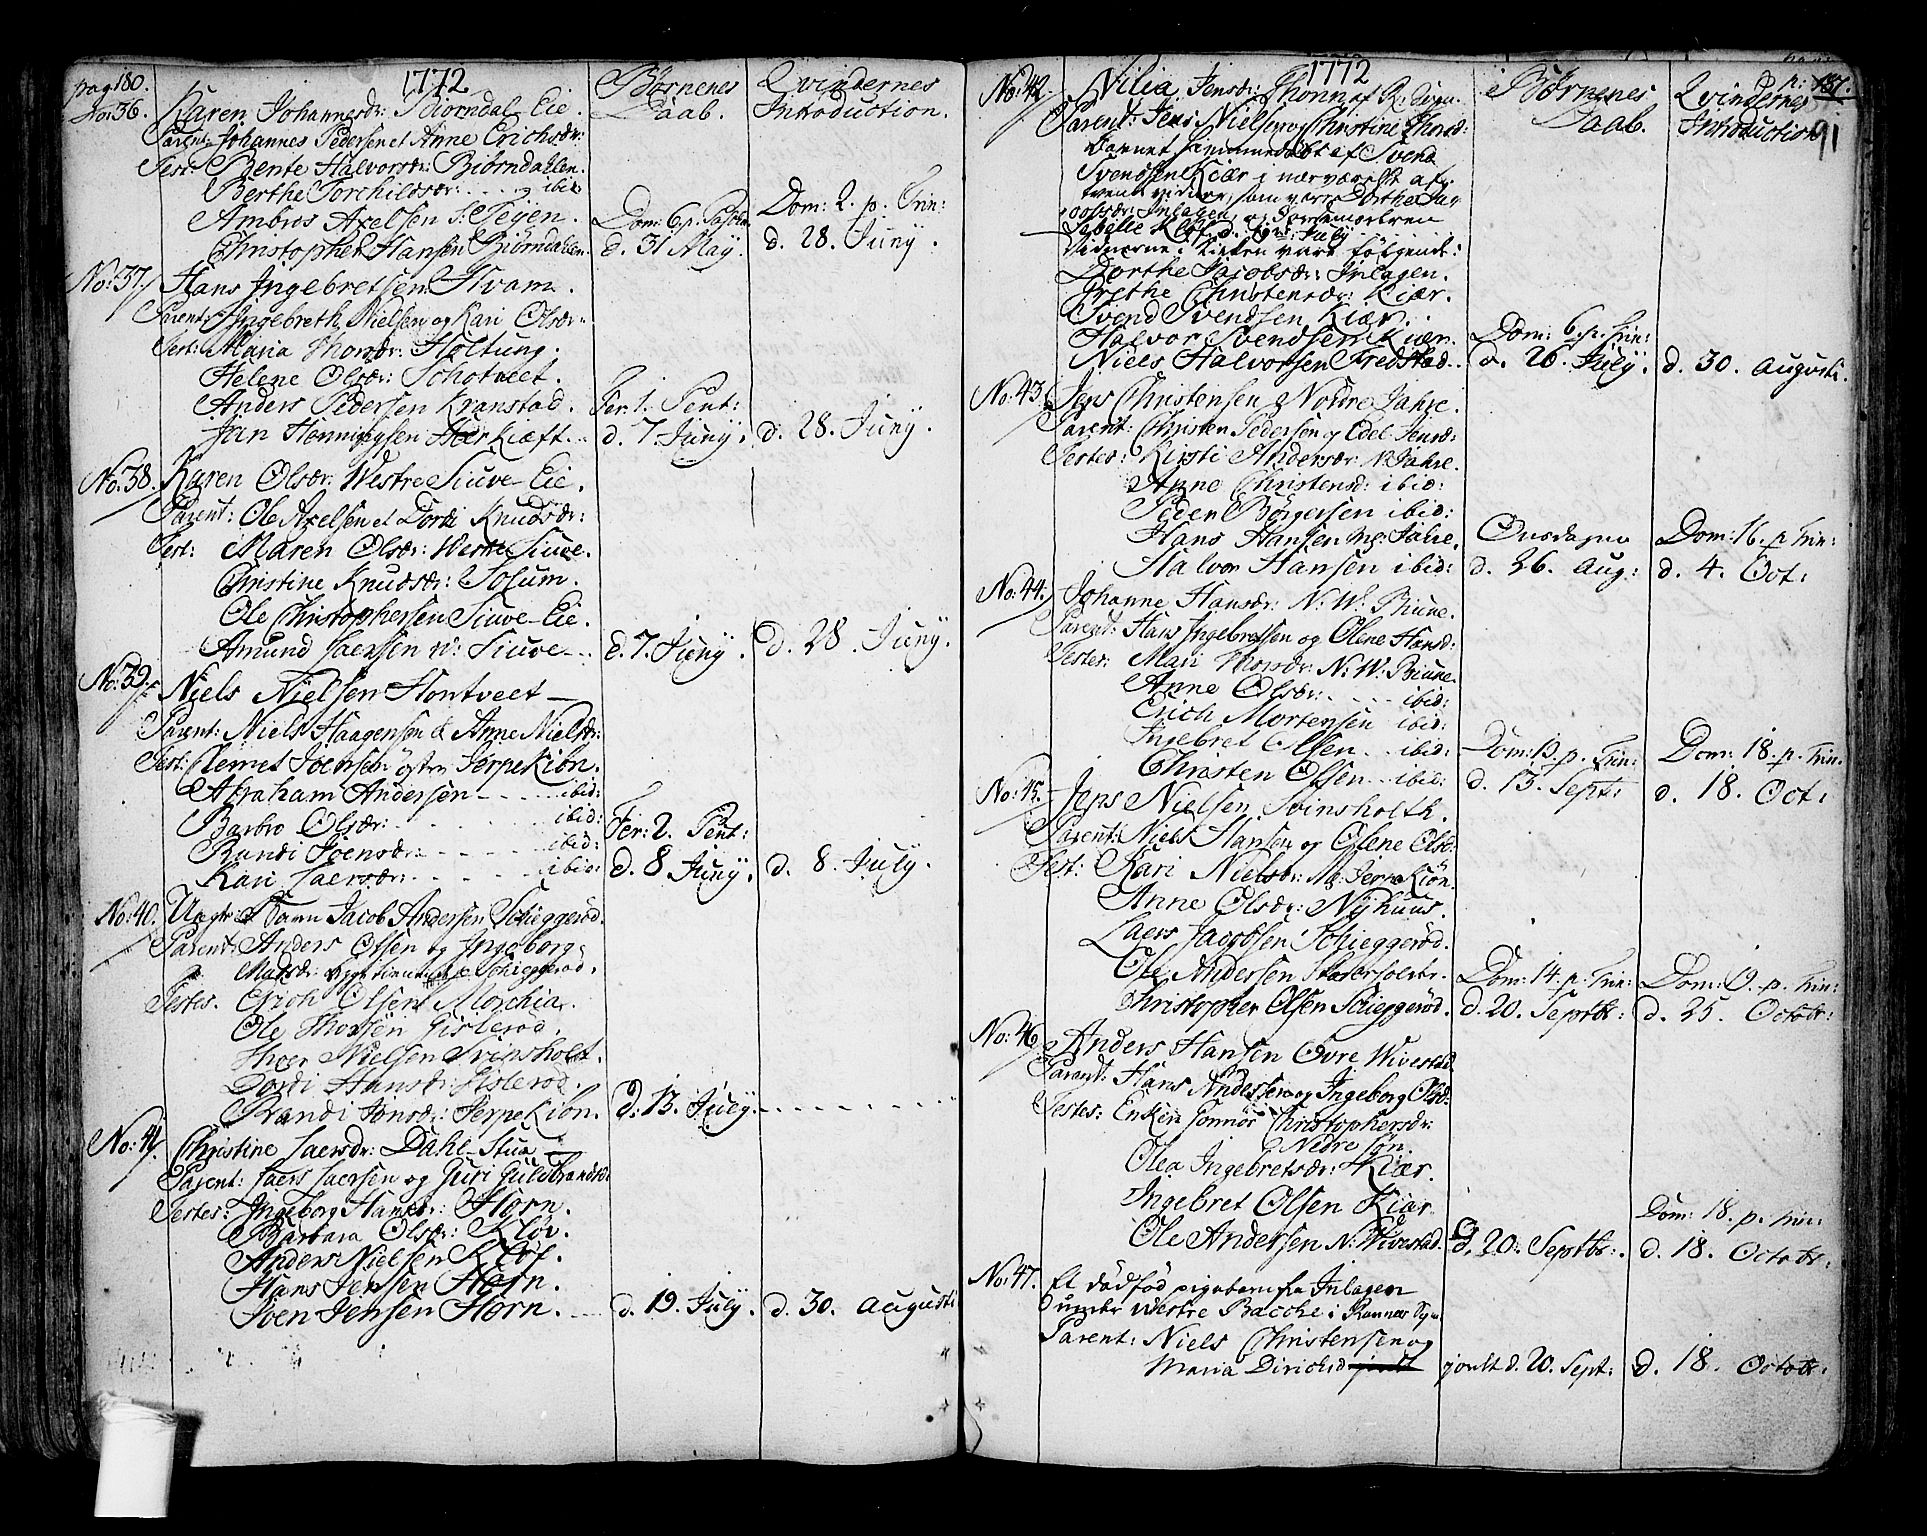 pag 180. 1772 Børnenes Qvindernes
Daab. Introduction.
No: 36. Karen Johannesdr: Biørndal Eie.
Parent: Johannes Pedersen et Anne Erichsdr:
Test: Bente Halvorsdr: Biørndalen.
Berthe Torchildsdr: ibid:
Ambros Axelsen
Christopher Hansen Biørndalen.
Dom: 6. p. Pasch:
d. 31 May.
Dom: 2. p. Trin:
d. 28. Juny.
No: 37. Hans Ingebretsen Hvam.
Parent: Ingebreth Nielsen og Kari Olsdr:
Test: Maria Thorsdr: Holtung.
Helene Olsdr: Schotveet.
Anders Pedersen Kranstad.
Jan Henningsen
Fer: 1. Pent:
d. 7 Juny.
d. 28. Juny.
No: 38. Karen Olsdr: Westre Siuve Eie.
Parent: Ole Axelsen et Dordi Knudsdr:
Test: Maren Olsdr: Westre Siuve.
Christine Knudsdr: Solum.
Ole Christophersen Siuve-Eie.
Amund Laersen W: Siuve
d. 7. Juny.
d. 28. Juny.
No: 39. Niels Nielsen Hontveet
Parent: Niels Haagensen & Anne Nielsdr:
Test: Clemet Joensen østre JerpeKiøn.
Abraham Andersen ibid:
Barbro Olsdr: ibid:
Randi Joensdr: ibid:
Kari Laersdr: ibid:
Fer: 2. Pent:
d. 8 Juny.
d. 8. July.
No: 40. Uægte Barn Jacob Andersen Schieggerød.
Parent: Anders Olsen og Ingeborg
Madsdr: Schieggerød.
Testes. Erich Olsen Morchia.
Ole Thorsen Gislerød.
Thoer Nielsen Svinsholt.
Dordi Hansdr: Gislerød.
Randi Jonsdr: JerpeKiøn.
d. 13. July.
No: 41. Christine Laersdr: Dahl-Stua
Parent: Laers Laersen og Guri Guldbrandsd:
Testes: Ingeborg Hansdr: Horn.
Barbara Olsdr: Kløv.
Anders Nielsen Kløf.
Hans Jensen Horn.
Joen Jensen Horn.
d. 19. July.
d. 30. Augusti
1772 Børnenes Qvindernes
Daab. Introduction
91
No: 42. Nilia Jensdr:
Parent: Jens Nielsen og Christine Thorsd:
Barnet hiemmedøbt af Svend
Svendsen Kiær i nærværelse af
tvende vidner, som vare Dorthe Ja-
cobsdr: Inlagen, og Jordemoderen
Sebille Kløf. d. July
Vidnerne i Kirken vare følgende:
Dorthe Jacobsdr: Inlagen.
Grethe Christensdr: Kiær.
Svend Svendsen Kiær.
Halvor Svendsen Kiær.
Niels Halvorsen Fredstad.
Dom: 6. p. Trin:
d. 26. July.
d. 30. Augusti.
No: 43. Jens Christensen Nordre Jahre.
Parent: Christen Pedersen og Edel Jensdr:
Testes: Kirsti Andersdr: N: Jahre.
Anne Christensd: ibid:
Peder Børgersen ibid:
Hans Hansen Jahre.
Halvor Hansen ibid:
Onsdagen
d. 26. Aug:
Dom: 16. p. Trin:
d. 4. Oct:
No: 44. Johanne Hansdr: N: W: Briune.
Parent: Hans Ingebretsen og Olene Hansd:
Testes: Mari Thorsdr: N: W: Briune.
Anne Olsdr: ibid:
Erich Mortensen ibid:
Ingebret Olsen ibid:
Christen Olsen ibid:
Dom: 13. p. Trin:
d. 13. Sept:
Dom: 18. p. Trin.
d. 18. Oct:
No: 45. Jens Nielsen Svinsholth.
Parent: Niels Hansen og Olene Ols:
Test: Kari Nielsdr: M: JerpeKiøn.
Anne Olsdr: Nyhuus.
Laers Jacobsen Schieggerød.
Ole Andersen
Christopher Olsen Schieggerød.
Dom: 14. p. Trin:
d. 20. Septbr:
Dom: 19. p. Trin:
d. 25. Octobr:
No: 46. Anders Hansen Øvre Wivestad
Parent: Hans Andersen og Ingeborg Olsdr:
Testes: Enken Gonnor Christophersdr:
Nedre
Olea Ingebretsdr: Kiær.
Ingebret Olsen Kiær
Ole Andersen N: Wivestad.
d. 20. Septbr:
Dom: 18. p. Trin:
d. 18. Octobr:
No: 47. Et dødfød pigebarn fra Inlagen
under Westre Bacche i Ramnes
Parent: Niels Christensen og
Maria Dirichsd
jordt d. 20. Sept:
d. 18. Octobr: